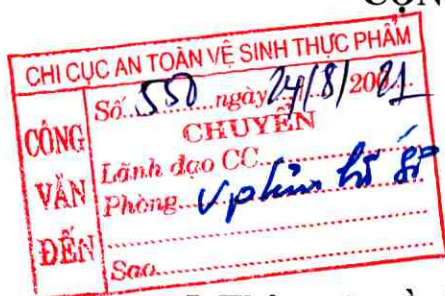 CỘN
CHI CỤC AN TOÀN VỆ SINH THỰC PHẨM
CÔNG
VĂN
ĐẾN
Số 550 ngày 24/8/2021
CHUYỂN
Lãnh đạo CC
Phòng
Sao